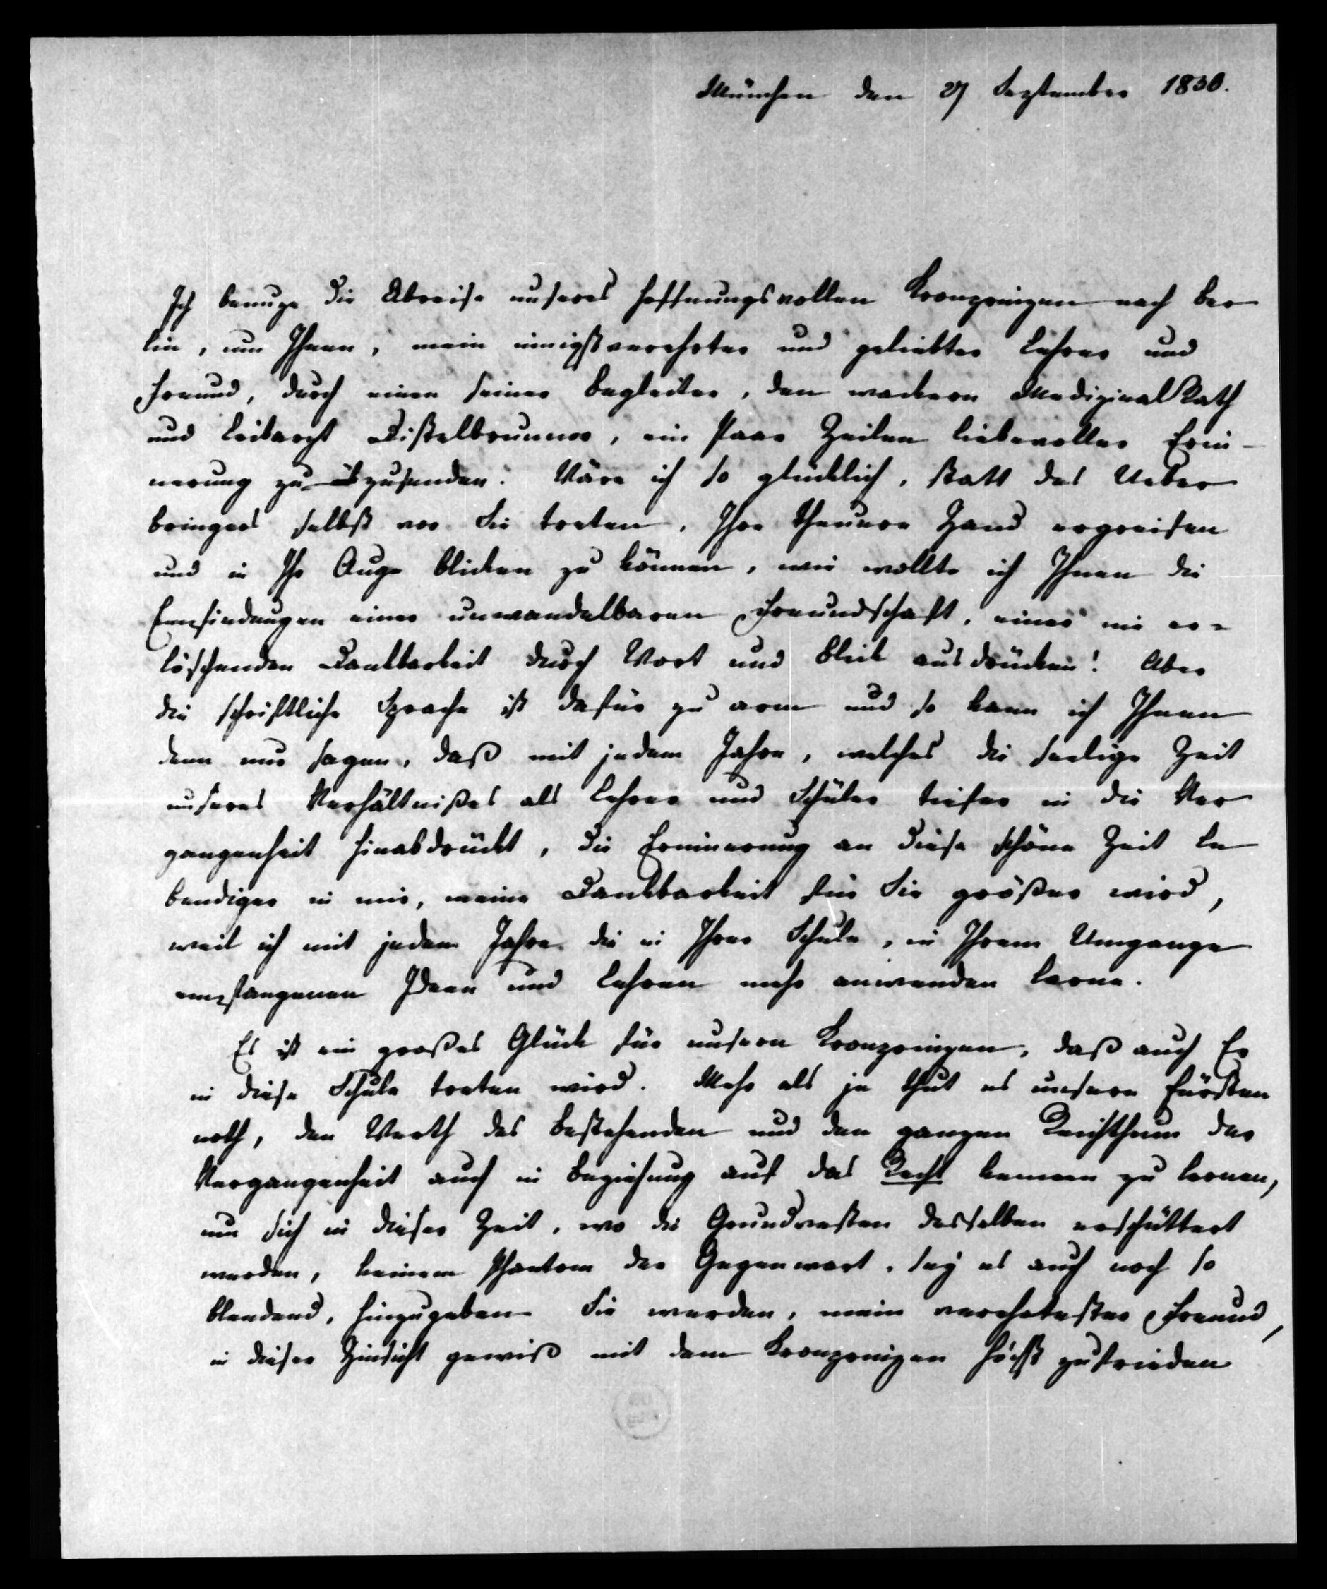 München den 27 September 1830.
Ich benuze die Abreise unseres hoffnungsvollen Kronprinzen nach Ber
lin, um Ihnen, mein innigstverehrter und geliebter Lehrer und
Freund, durch einen seiner Begleiter, den wackern MedizinalRath
und Leibarzt Distelbrunner, ein Paar Zeilen liebevoller Erin-
nerung zuzusenden. Wäre ich so glücklich, statt des Ueber
bringers selbst vor Sie treten, Ihre theuere Hand ergreifen
und in Ihr Auge blicken zu können, wie wollte ich Ihnen die
Empfindungen einer unwandelbaren Freundschaft, einer nie er-
löschenden Dankbarkeit durch Wort und Blick ausdrücken! Aber
die schriftliche Sprache ist dafür zu arm und so kann ich Ihnen
denn nur sagen, daß mit jedem Jahre, welches die seelige Zeit
unseres Verhältnißes als Lehrer und Schüler tiefer in die Ver
gangenheit hinabdrückt, die Erinnerung an diese schöne Zeit le
bendiger in mir, meine Dankbarkeit für Sie größer wird,
weil ich mit jedem Jahre die in Ihrer Schule, in Ihrem Umgange
empfangenen Ideen und Lehren mehr anwenden lerne.
Es ist ein großes Glück für unsern Kronprinzen, daß auch Er
in diese Schule treten wird. Mehr als je thut es unsern Fürsten
noth, den Werth des Bestehenden und den ganzen Reichthum der
Vergangenheit auch in Beziehung auf das Recht kennen zu lernen,
um sich in dieser Zeit, wo die Grundvesten desselben erschüttert
werden, keinem Phantom der Gegenwart, sey es auch noch so
blendend, hinzugeben. Sie werden, mein verehrtester Freund,
in dieser Hinsicht gewiß mit dem Kronprinzen höchst zufrieden